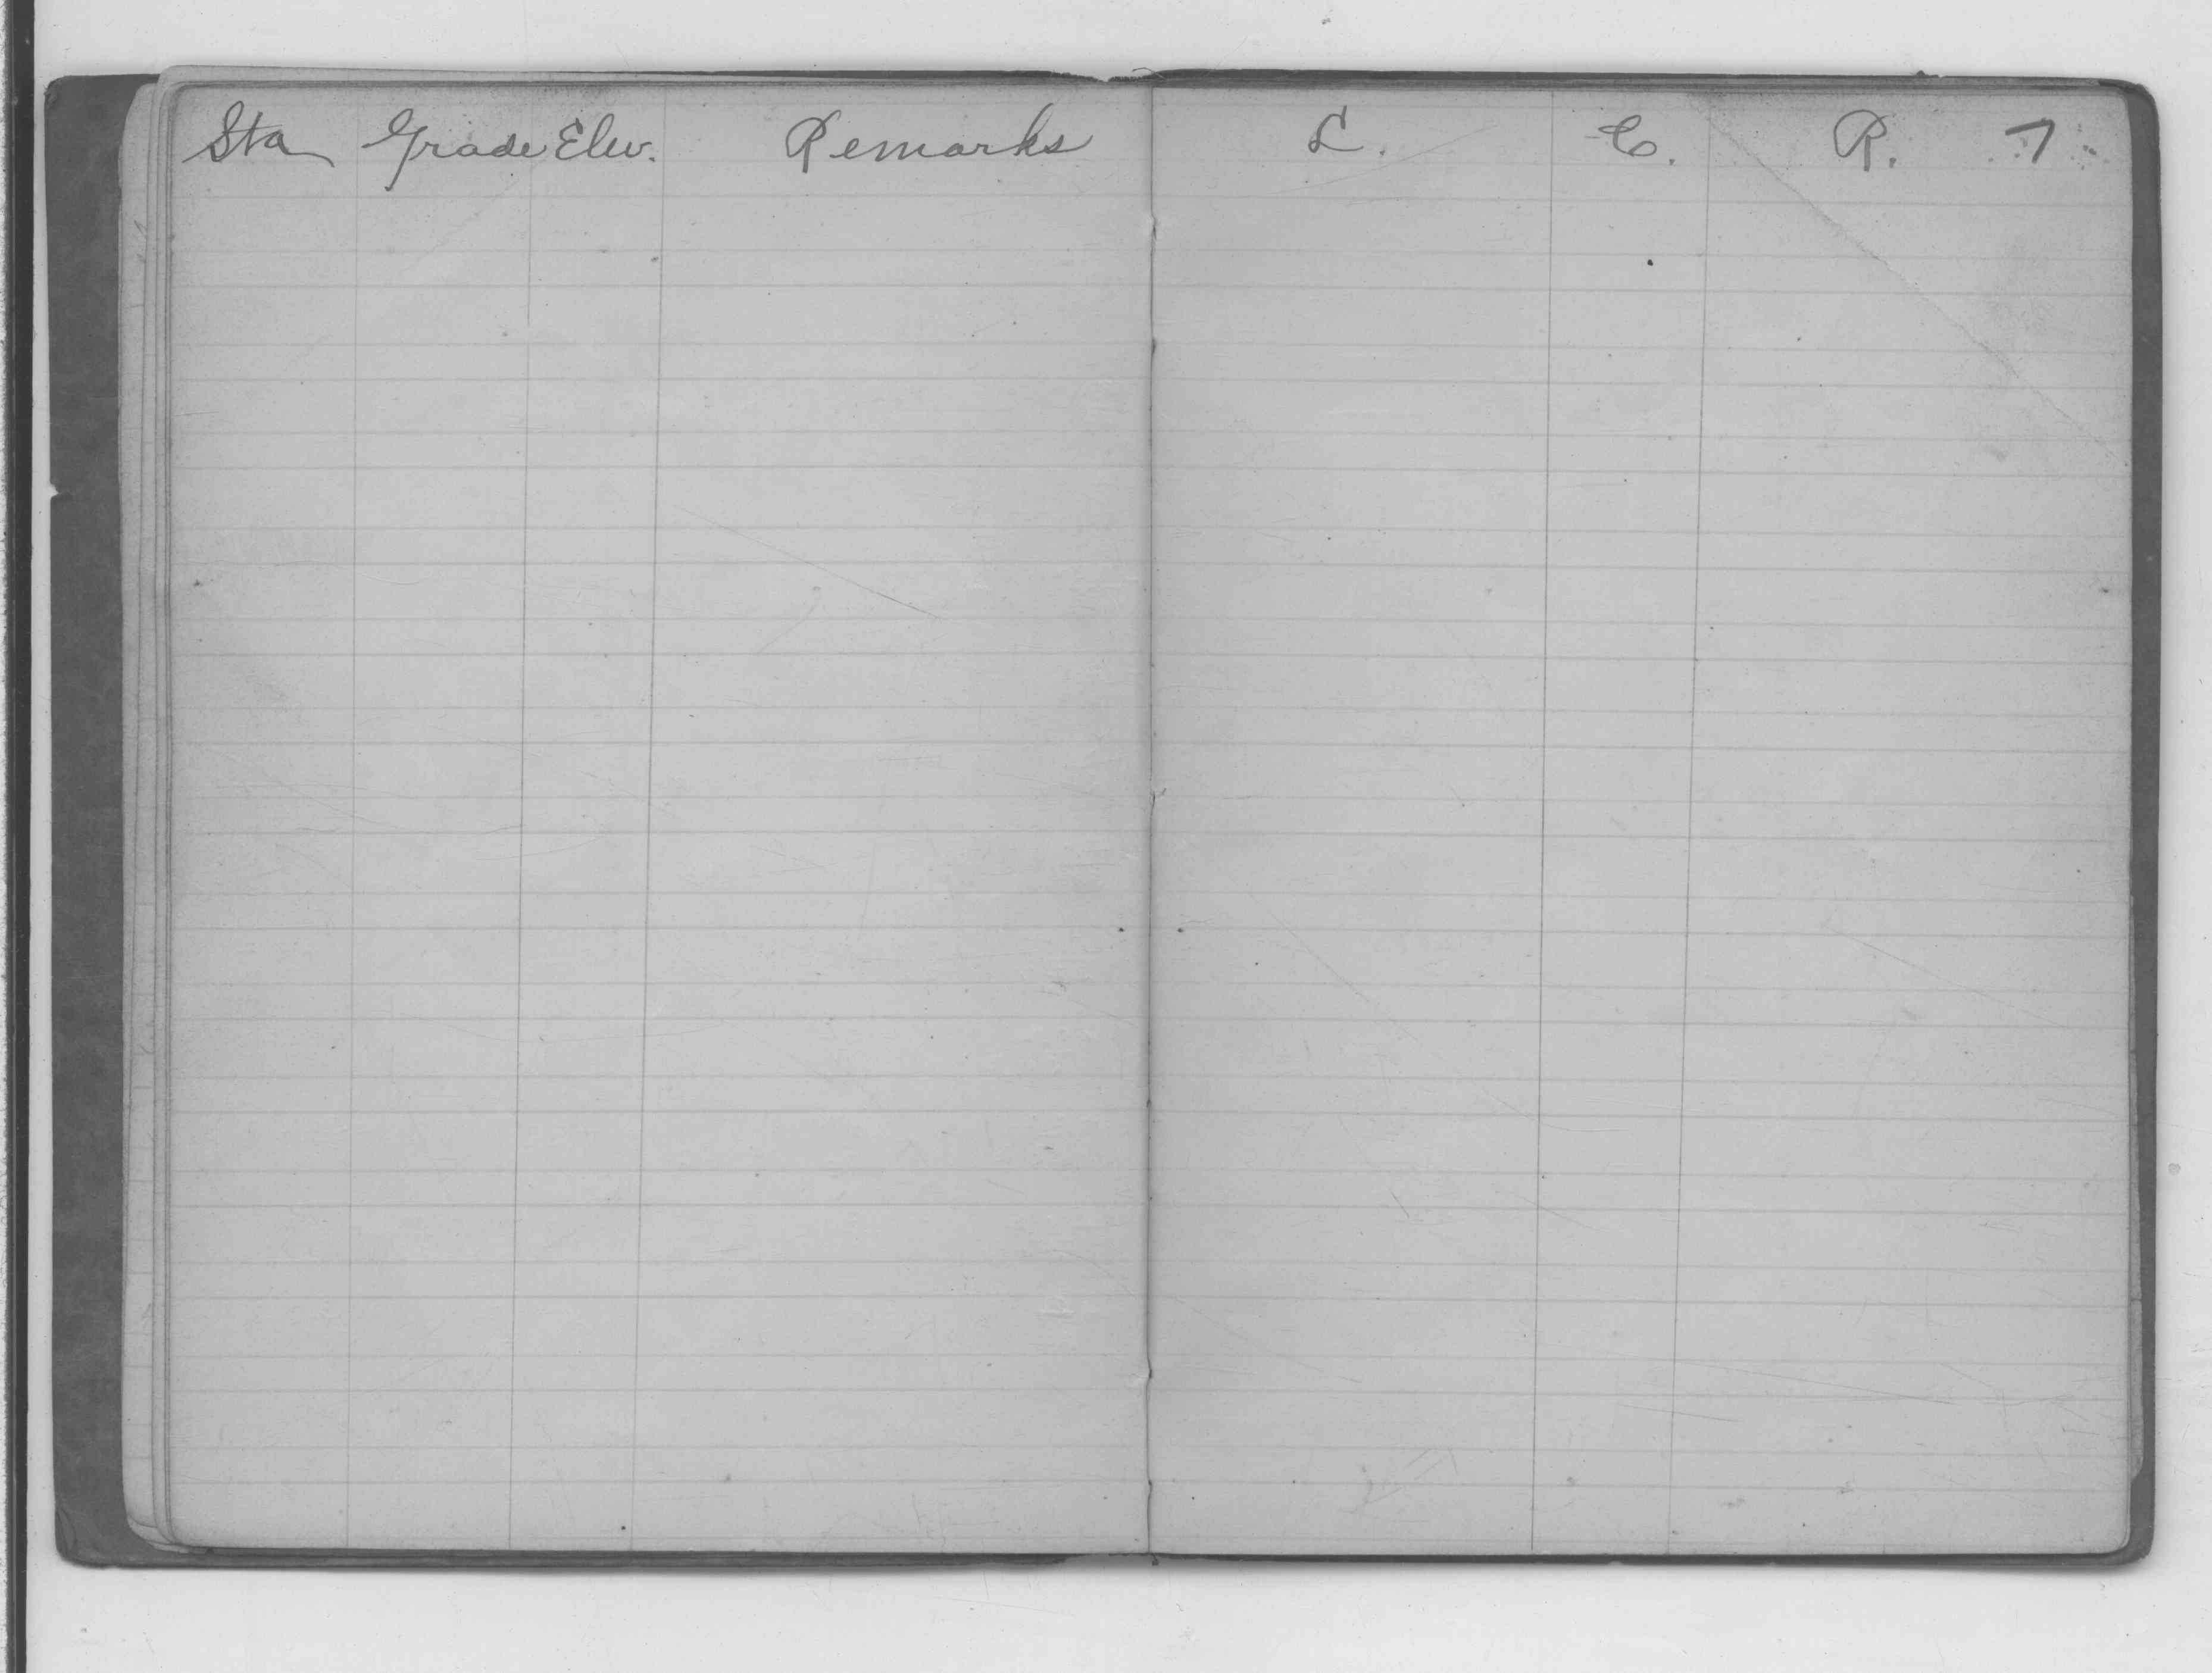 Sta Grade Elev. Remarks L. C. R. 7